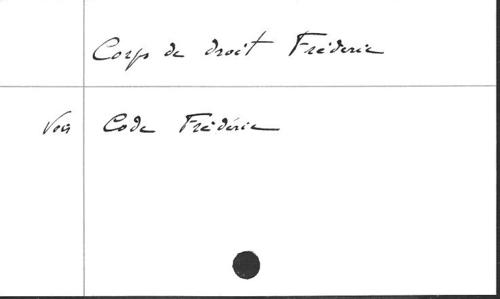 Corps de droit Fréderic
Voir Code Frédéric